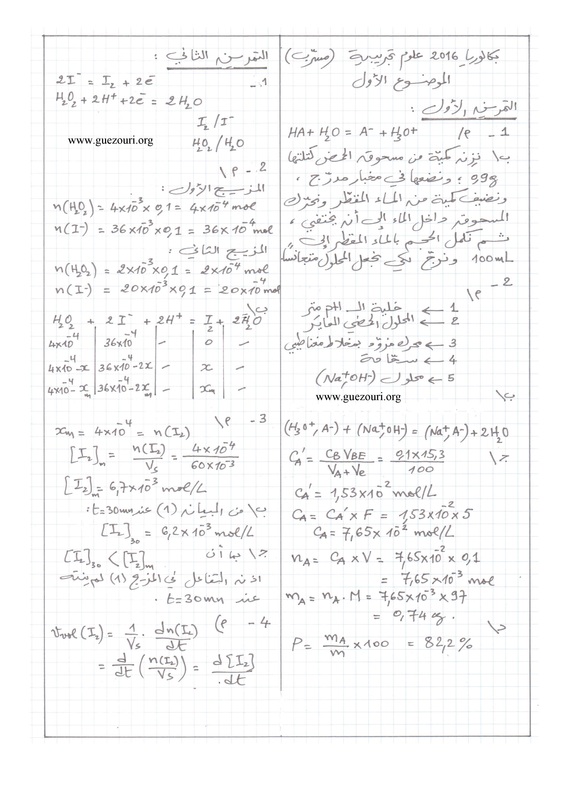 بكالوريا 2016 علوم تجريبية (مسرّب)
الموضوع الأول
التمرين الأول :
1 - أ/ HA + H₂O = A⁻ + H₃O⁺
ب\ نزنه كميّة من مسحوق الحمض كتلتها
0,9g ، ونضعها في مخبار مدرّج ،
ونضيف كمية من الماء المقطّر ونحرّك
المسحوق داخل الماء إلى أن يختفي ،
ثم نكمل الحجم بالماء المقطر إلى
100mL ونرجّ لكي نجعل المحلول متجانسًا
2 -
أ\
1 ← خلية الـ pH متر
2 ← المحلول الحمضي المعاير
3 ← محرك مزوّد بمخلاط مغناطيسي
4 ← سحّاحة
5 ← محلول (Na⁺, OH⁻)
www.guezouri.org
ب\
(H₃O⁺, A⁻) + (Na⁺, OH⁻) = (Na⁺, A⁻) + 2H₂O
ج\ C'A = CB VBE / (VA + Ve) = 0,1 × 15,3 / 100
C'A = 1,53×10⁻² mol/L
CA = C'A × F = 1,53×10⁻² × 5
CA = 7,65×10⁻² mol/L
nA = CA × V = 7,65×10⁻² × 0,1
= 7,65×10⁻³ mol
mA = nA . M = 7,65×10⁻³ × 97
= 0,74 g .
د\
P = mA / m × 100 = 82,2 %
التمرين الثاني :
1 -
2I⁻ = I₂ + 2e⁻
H₂O₂ + 2H⁺ + 2e⁻ = 2H₂O
I₂ / I⁻
www.guezouri.org H₂O₂ / H₂O
2 - أ\
المزيج الأول :
n(H₂O₂) = 4×10⁻³ × 0,1 = 4×10⁻⁴ mol
n(I⁻) = 36×10⁻³ × 0,1 = 36×10⁻⁴ mol
المزيج الثاني :
n(H₂O₂) = 2×10⁻³ × 0,1 = 2×10⁻⁴ mol
n(I⁻) = 20×10⁻³ × 0,1 = 20×10⁻⁴ mol
ب\
H₂O₂ + 2I⁻ + 2H⁺ = I₂ + 2H₂O
4×10⁻⁴ | 36×10⁻⁴ | – | 0 | –
4×10⁻⁴-x | 36×10⁻⁴-2x | – | x | –
4×10⁻⁴-xm | 36×10⁻⁴-2xm | – | xm | –
3 - أ\
xm = 4×10⁻⁴ = n(I₂)
[I₂]m = n(I₂) / Vs = 4×10⁻⁴ / 60×10⁻³
[I₂]m = 6,7×10⁻³ mol/L
ب\ من البيانه (1) عند t=30mn :
[I₂]₃₀ = 6,2×10⁻³ mol/L
ج\ بما أن [I₂]₃₀ < [I₂]m
اذن التفاعل في المزيج (1) لم ينته
عند t=30mn .
4 - أ) vvol(I₂) = 1/Vs . dn(I₂)/dt
= d/dt (n(I₂)/Vs) = d[I₂]/dt